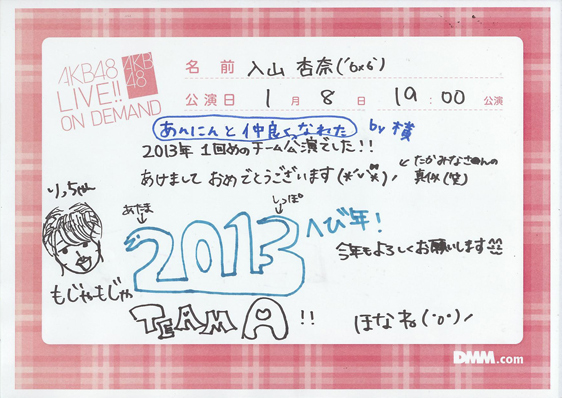 AKB48
LIVE!!
ON DEMAND
AKB
48
名前 入山 杏奈('δxδ)
公演日 1月8日 19:00 公演
あへにんと仲良くなれた by横
2013年 1回めのチーム公演でした!!
あけまして おめでとうございます(*´˘`*)ノ
←たかみなさんの
真似(笑)
りっちゃん
もじゃもじゃ
あたま
しっぽ
2013
へび年!
今年もよろしくお願いします
TEAM A!!
ほなね
DMM.com